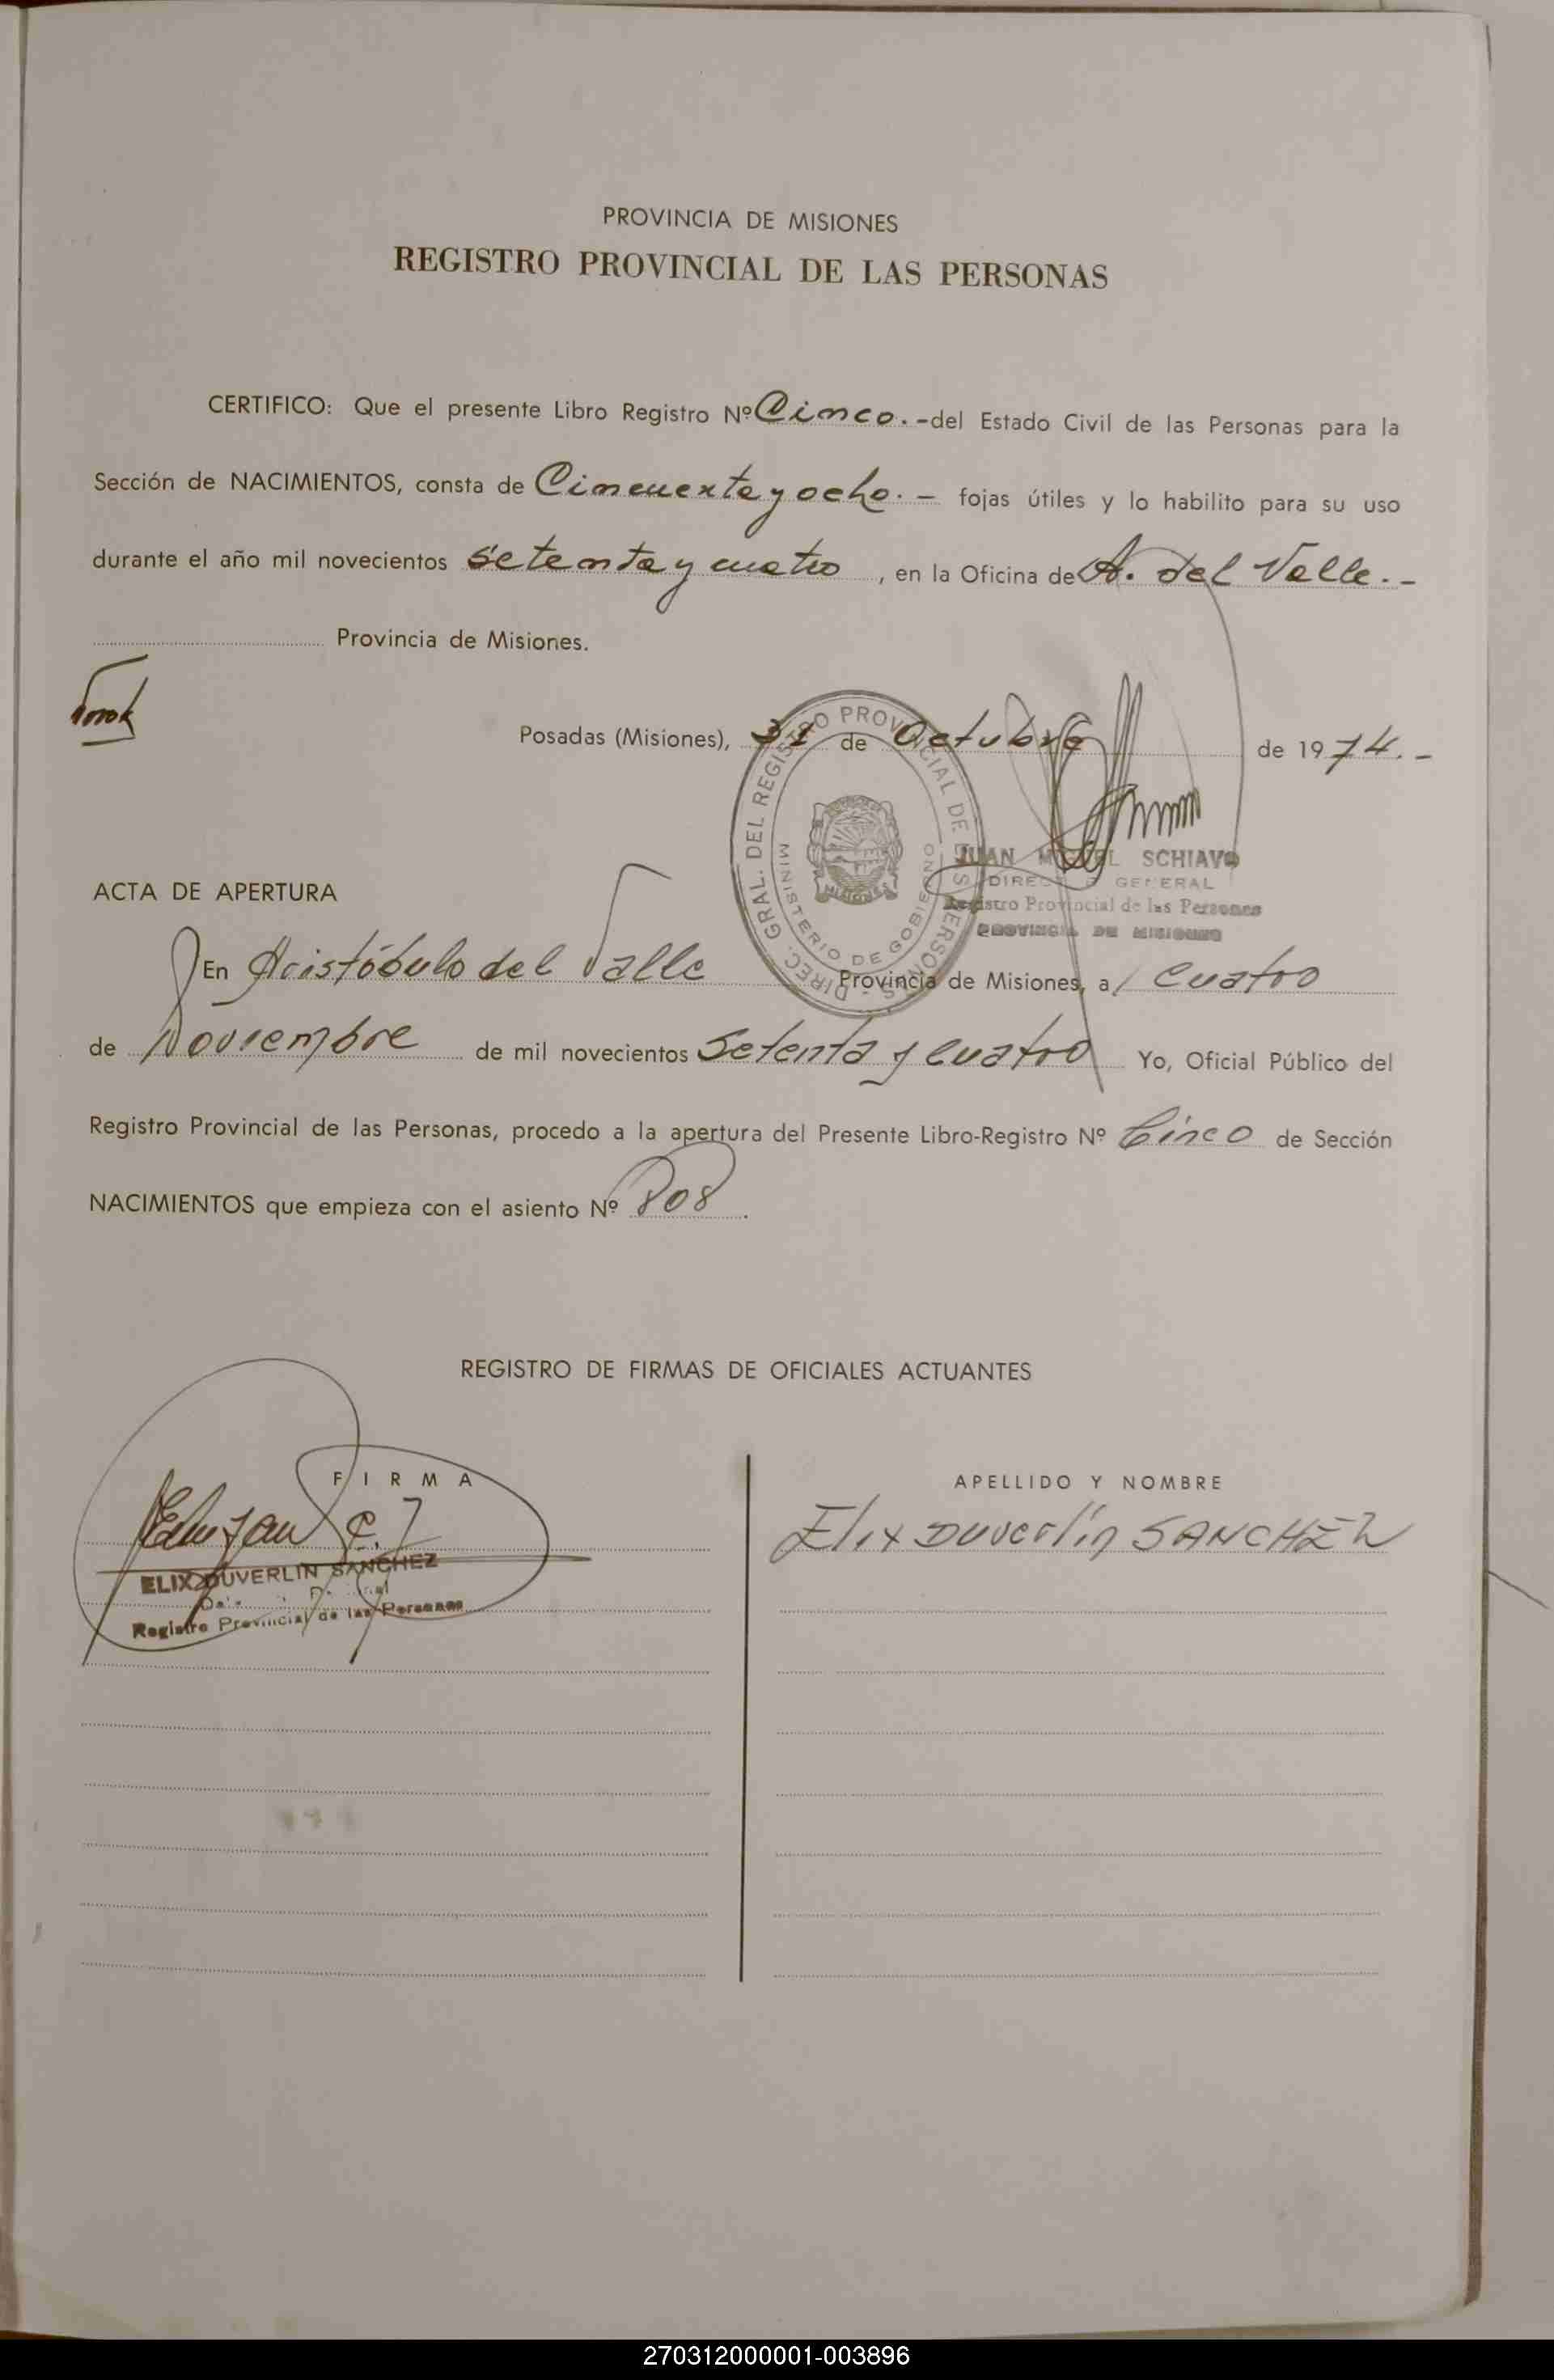 PROVINCIA DE MISIONES
REGISTRO PROVINCIAL DE LAS PERSONAS
CERTIFICO: Que el presente Libro Registro Nº Cinco. - del Estado Civil de las Personas para la
Sección de NACIMIENTOS, consta de Cincuenta y ocho. - fojas útiles y lo habilito para su uso
durante el año mil novecientos setenta y cuatro, en la Oficina de A. del Valle. -
Provincia de Misiones.
Posadas (Misiones), 31 de Octubre de 1974. -
DIREC. GRAL. DEL REGISTRO PROVINCIAL DE LAS PERSONAS -
MINISTERIO DE GOBIERNO
MISIONES
JUAN MIGUEL SCHIAVO
DIRECTOR GENERAL
Registro Provincial de las Personas
PROVINCIA DE MISIONES
ACTA DE APERTURA
En Aristóbulo del Valle Provincia de Misiones, a Cuatro
de Noviembre de mil novecientos Setenta y Cuatro Yo, Oficial Público del
Registro Provincial de las Personas, procedo a la apertura del Presente Libro-Registro Nº Cinco de Sección
NACIMIENTOS que empieza con el asiento Nº 808.
REGISTRO DE FIRMAS DE OFICIALES ACTUANTES
FIRMA
APELLIDO Y NOMBRE
Elix Duverlin SANCHEZ
ELIX DUVERLIN SANCHEZ
Registro Provincial de las Personas
270312000001-003896